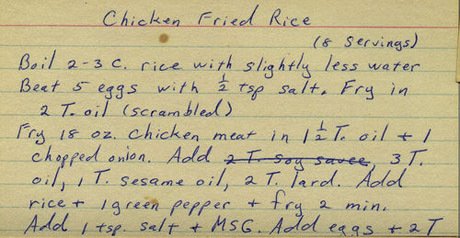 Chicken Fried Rice
(8 servings)
Boil 2-3 c. rice with slightly less water
Beat 5 eggs with ½ tsp salt. Fry in
2 T. oil (scrambled)
Fry 18 oz. chicken meat in 1½ T. oil + 1
chopped onion. Add 2 T. soy sauce, 3 T.
oil, 1 T. sesame oil, 2 T. lard. Add
rice + 1 green pepper + fry 2 min.
Add 1 tsp. salt + MSG. Add eggs + 2 T